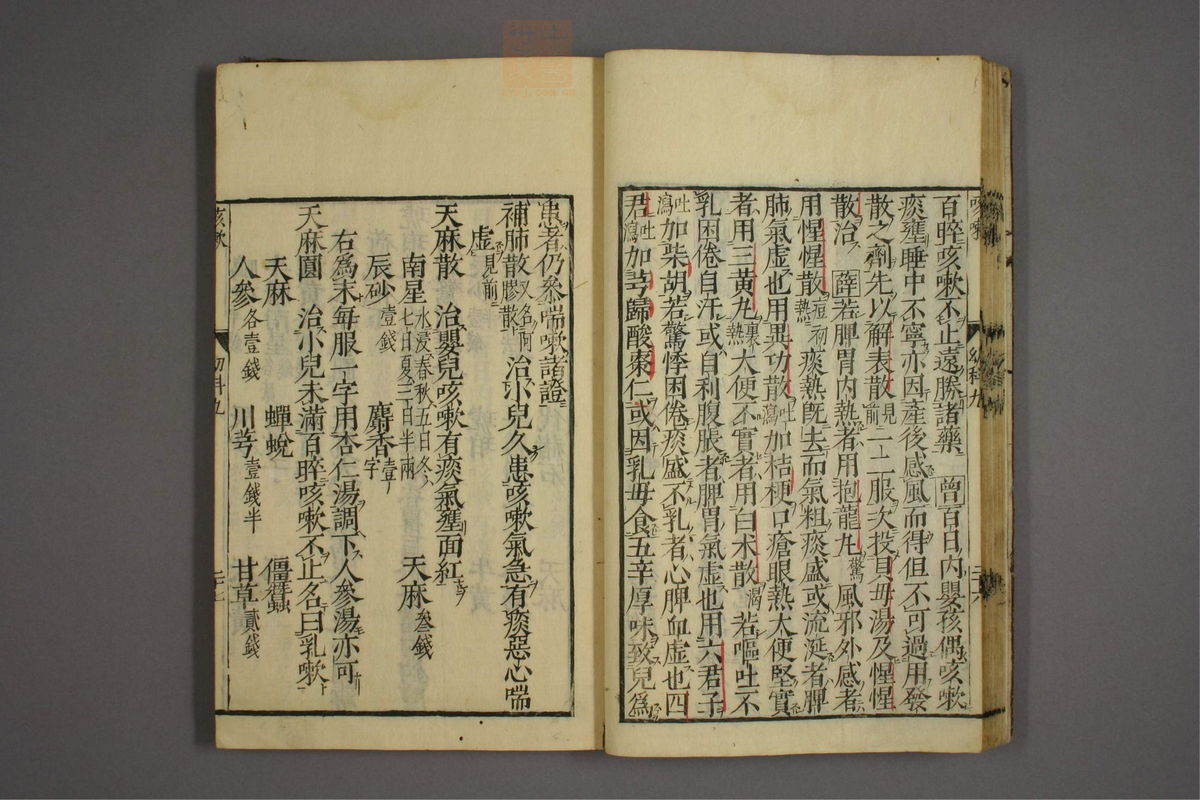 百晬咳嗽不止遠勝諸藥 曾百日內嬰孩偶咳嗽
痰壅睡中不寧亦因產後感風而得但不可過用發
散之劑先以解表散見前一二服次投貝母湯及惺惺
散治 薛若脾胃內熱者用抱龍丸驚風邪外感者
用惺惺散痘初熱痰熱既去而氣粗痰盛或流涎者脾
肺氣虛也用異功散吐瀉加桔梗口瘡眼熱大便堅實
者用三黃丸裏熱大便不實者用白术散渴若嘔吐不
乳困倦自汗或自利腹脹者脾胃氣虛也用六君子
吐瀉加柴胡若驚悸困倦痰盛不乳者心脾血虛也四
君吐瀉加芎歸酸棗仁或因乳母食五辛厚味致兒爲
患者仍叅喘嗽諸證
補肺散又名阿膠散 治小兒久患咳嗽氣急有痰惡心喘
虛見前
天麻散 治嬰兒咳嗽有痰氣壅面紅
南星水浸春秋五日冬七日夏三日半兩 天麻叄錢
辰砂壹錢 麝香壹字
右爲末每服一字用杏仁湯調下人參湯亦可
天麻圓 治小兒未滿百晬咳嗽不止名曰乳嗽
天麻 蟬蛻 僵蠶
人參各壹錢 川芎壹錢半 甘草貳錢
咳嗽 幼科九